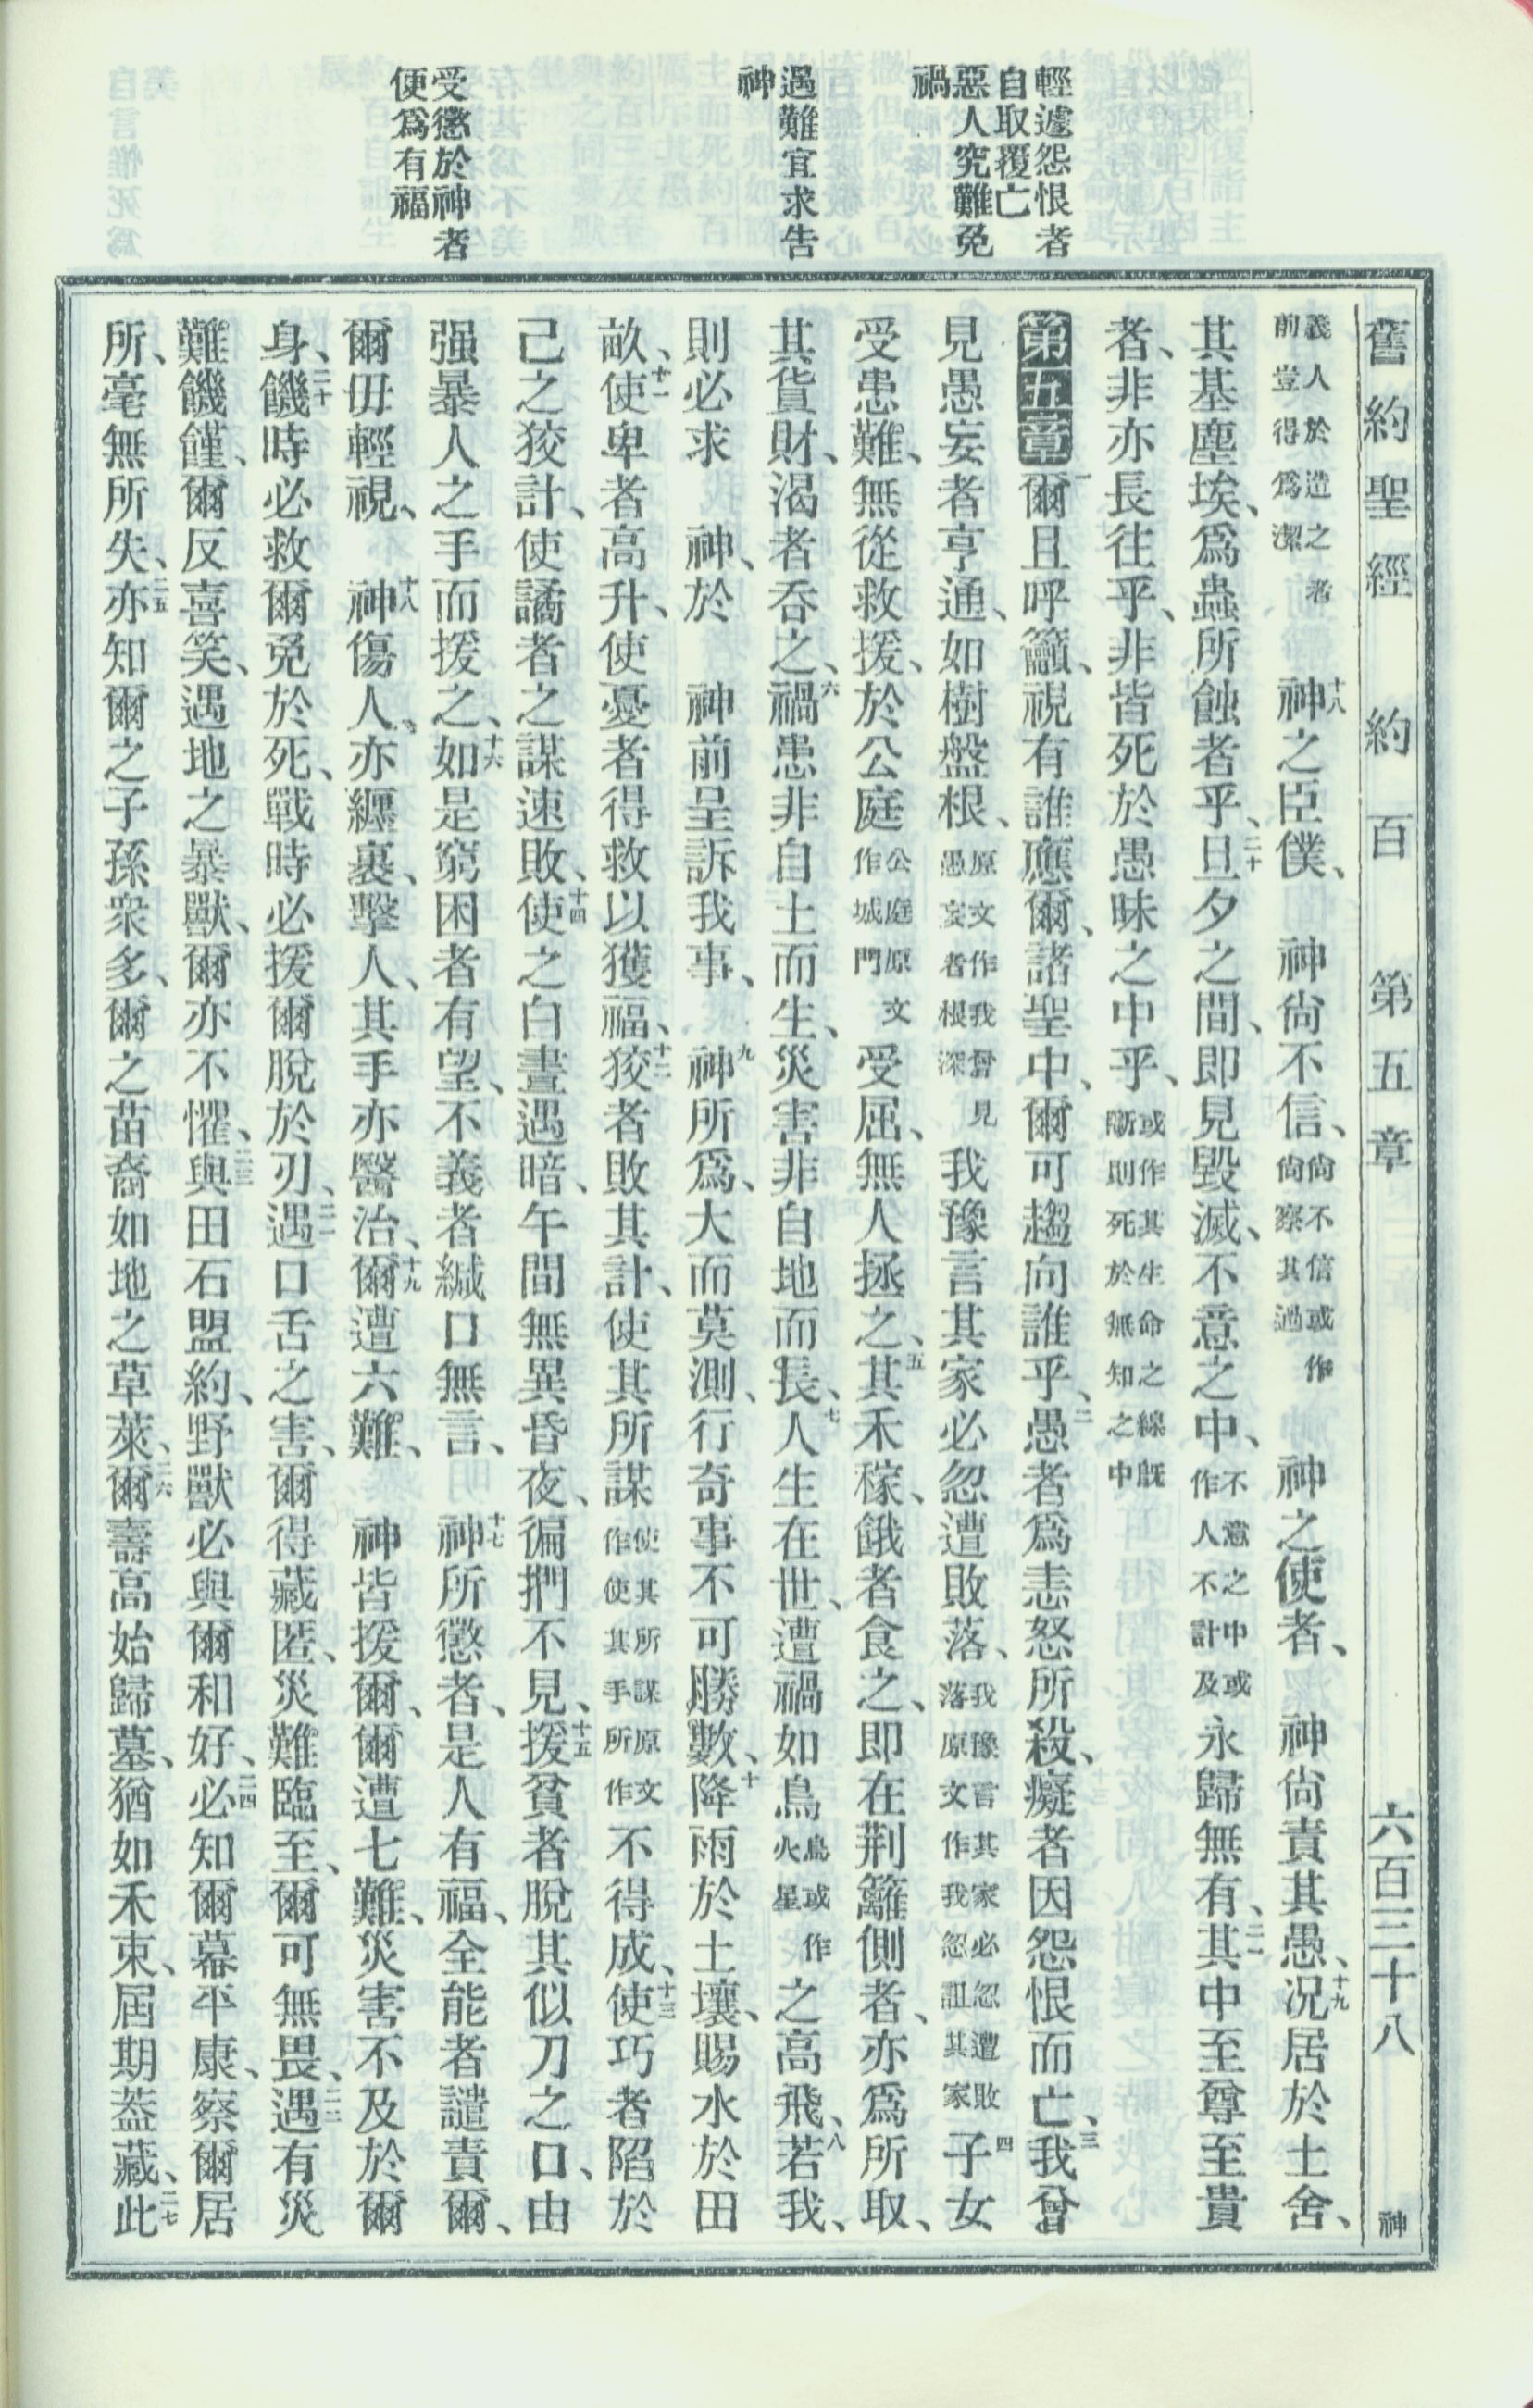 輕遽怨恨者
自取覆亡
惡人究難免
禍
遇難宜求告
神
受懲於神者
便爲有福
舊約聖經 約百 第五章 六百三十八 神
義人於造之者前豈得爲潔 十八神之臣僕、神尙不信、尙不信或作尙察其過 神之使者、神尙責其愚、十九況居於土舍、
其基塵埃、爲蟲所蝕者乎、二十旦夕之間、即見毀滅、不意之中、不意之中或作人不計及 永歸無有、二一其中至尊至貴
者、非亦長往乎、非皆死於愚昧之中乎、或作其生命之線旣斷則死於無知之中
第五章 一爾且呼籲、視有誰應爾、諸聖中、爾可趨向誰乎、二愚者爲恚怒所殺、癡者因怨恨而亡、三我曾
見愚妄者亨通、如樹盤根、原文作我曾見愚妄者根深 我豫言其家必忽遭敗落、我豫言其家必忽遭敗落原文作我忽詛其家 四子女
受患難、無從救援、於公庭公庭原文作城門 受屈、無人拯之、五其禾稼、餓者食之、即在荆籬側者、亦爲所取、
其貨財、渴者吞之、六禍患非自土而生、災害非自地而長、七人生在世、遭禍如鳥鳥或作火星 之高飛、八若我、
則必求 神、於 神前呈訴我事、九神所爲、大而莫測、行奇事不可勝數、十降雨於土壤、賜水於田
畝、十一使卑者高升、使憂者得救以獲福、十二狡者敗其計、使其所謀使其所謀原文作使其手所作 不得成、十三使巧者陷於
己之狡計、使譎者之謀速敗、十四使之白晝遇暗、午間無異昏夜、徧捫不見、十五援貧者脫其似刀之口、由
强暴人之手而援之、十六如是窮困者有望、不義者緘口無言、十七神所懲者、是人有福、全能者譴責爾、
爾毋輕視、十八神傷人、亦纏裹、擊人、其手亦醫治、十九爾遭六難、神皆援爾、爾遭七難、災害不及於爾
身、二十饑時必救爾免於死、戰時必援爾脫於刃、二一遇口舌之害、爾得藏匿、災難臨至、爾可無畏、二二遇有災
難饑饉、爾反喜笑、遇地之暴獸、爾亦不懼、二三與田石盟約、野獸必與爾和好、二四必知爾幕平康、察爾居
所、毫無所失、二五亦知爾之子孫衆多、爾之苗裔如地之草萊、二六爾壽高始歸墓、猶如禾束、屆期葢藏、二七此